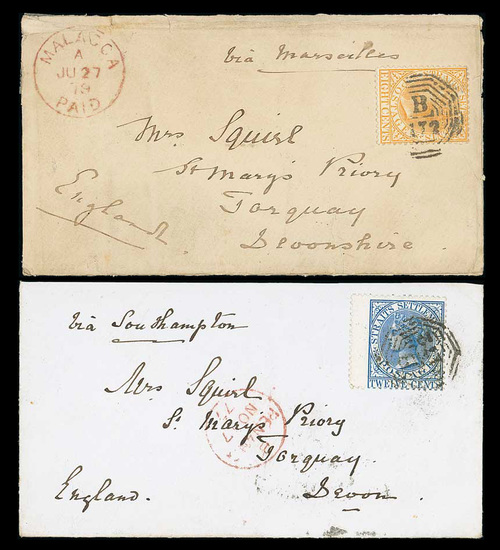 MALACCA
A
JU 27
79
PAID
via Marseilles
STRAITS SETTLEMENTS
POSTAGE
EIGHT CENTS
B
172
Mrs Squirl
St Mary's Priory
Torquay
Devonshire.
England
via Southampton
STRAITS SETTLEMENTS
POSTAGE
TWELVE CENTS
Mrs Squirl
St Marys Priory
Torquay.
Devon.
England.
NO 7